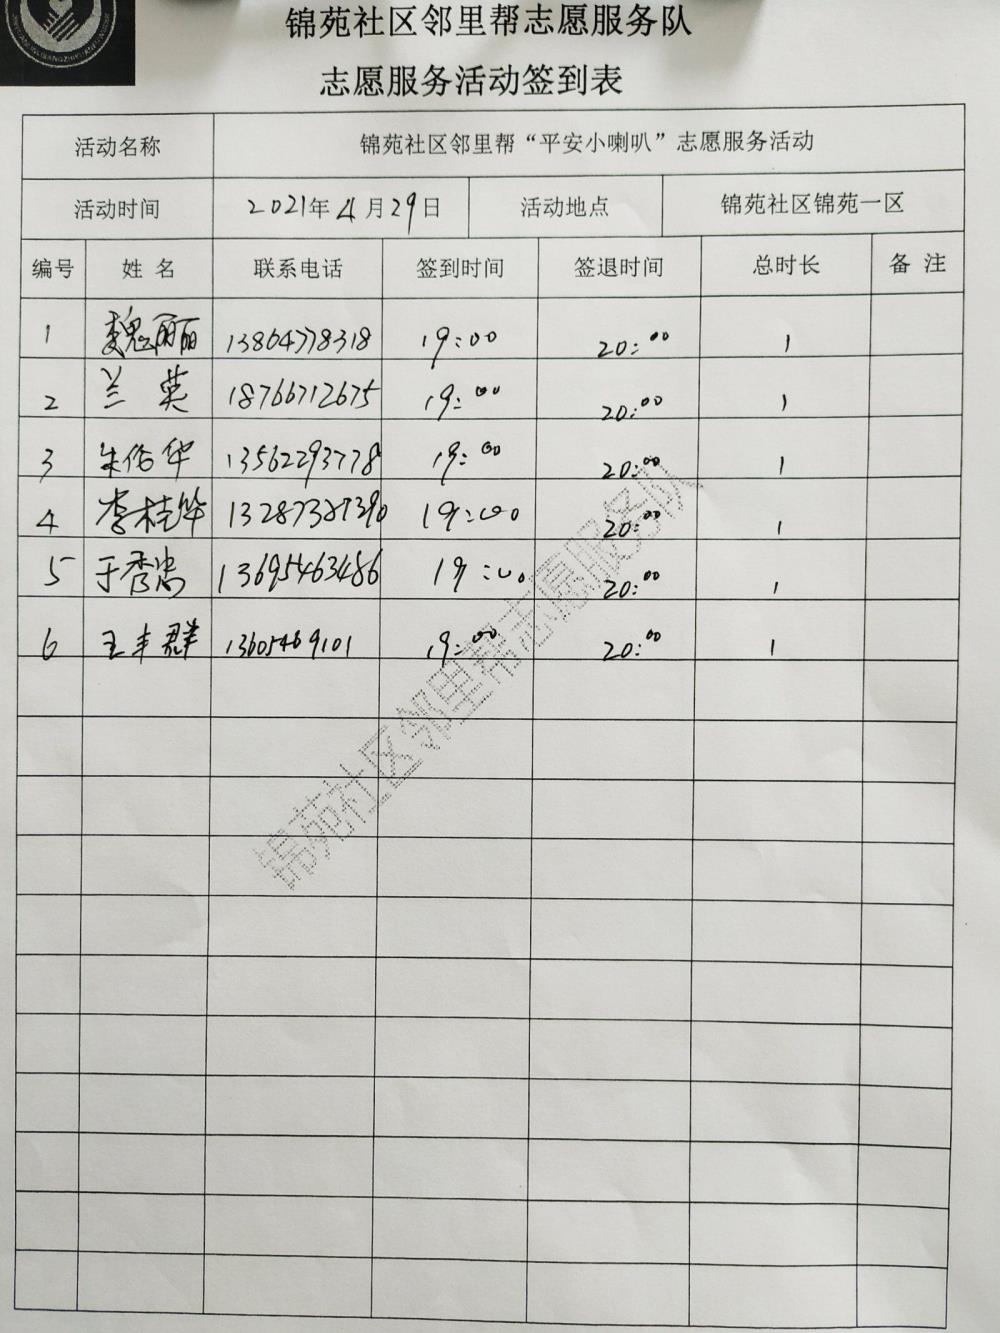 锦苑社区邻里帮志愿服务队
志愿服务活动签到表
活动名称 锦苑社区邻里帮“平安小喇叭”志愿服务活动
活动时间 2021年4月29日 活动地点 锦苑社区锦苑一区
编号 姓名 联系电话 签到时间 签退时间 总时长 备注
1 魏丽丽 13864778318 19:00 20:00 1
2 兰英 18766712675 19:00 20:00 1
3 华 13562293778 19:00 20:00 1
4 李桂华 13287387390 19:00 20:00 1
5 于秀忠 13695463486 19:00 20:00 1
6 王丰群 13605469101 19:00 20:00 1
锦苑社区邻里帮志愿服务队